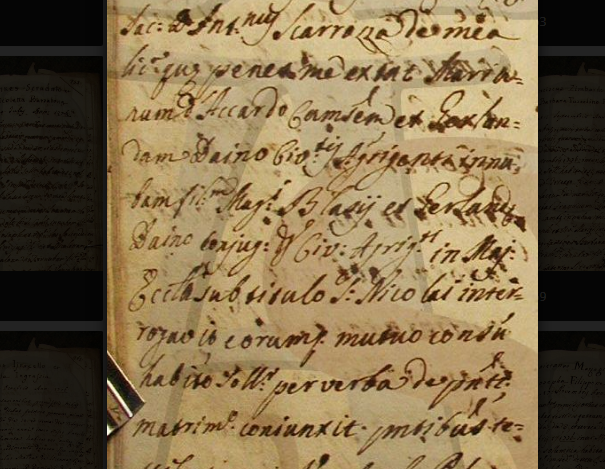 Sac: D. Ant.nus Scarrozza de mea
lic.a quę penes me extat Marria=
num D'Accardo Camsem et Gerlan=
dam Daino Civ.tis Agrigenti innu
bam fil.m Mag.i Blasij et Gerlandę
Daino conjug: Civ: Agrig.ti in Maj:
Eccla sub titulo S: Nicolai inter=
rogavit eorumq. mutuo consu
habito soll.r per verba de pntt:
matrim.o coniunxit pntibus te=